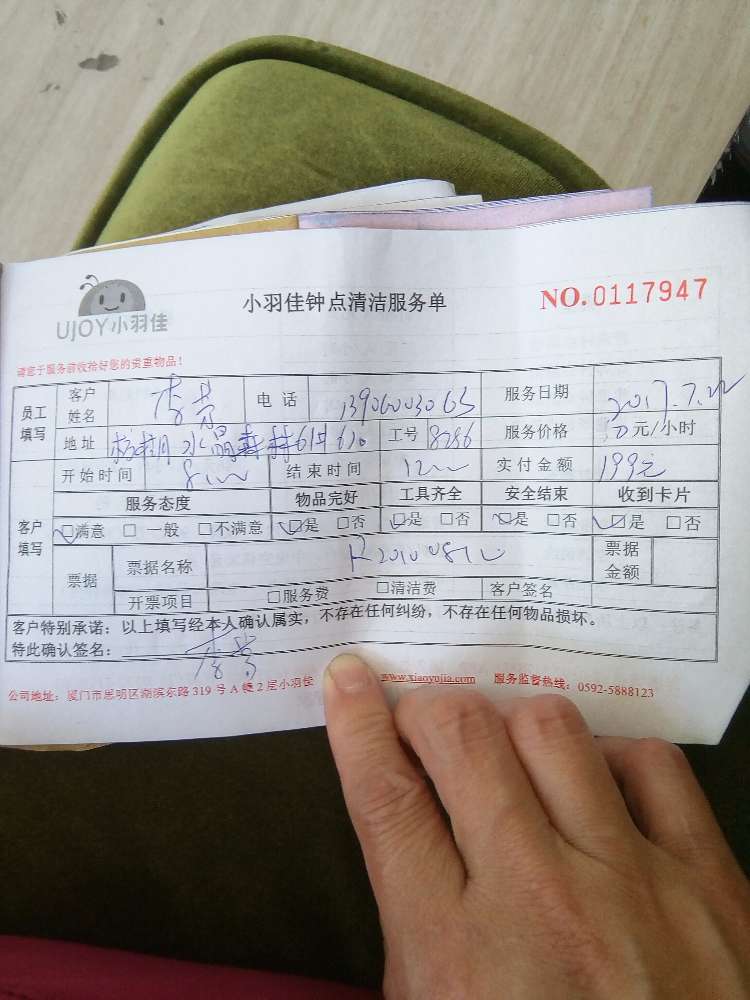 UJOY小羽佳
小羽佳钟点清洁服务单
NO.0117947
请您于服务前收拾好您的贵重物品!
员工填写 客户姓名 电话 服务日期 2017.7.22
地址 水晶森林 工号 8286 服务价格 元/小时
客户填写 开始时间 结束时间 实付金额 199元
服务态度 物品完好 工具齐全 安全结束 收到卡片
☑满意 □一般 □不满意 ☑是 □否 ☑是 □否 ☑是 □否 ☑是 □否
票据 票据名称 票据金额
开票项目 □服务费 □清洁费 客户签名
客户特别承诺:以上填写经本人确认属实,不存在任何纠纷,不存在任何物品损坏。
特此确认签名:
公司地址:厦门市思明区湖滨东路319号A幢2层小羽佳 www.xiaoyujia.com 服务监督热线:0592-5888123